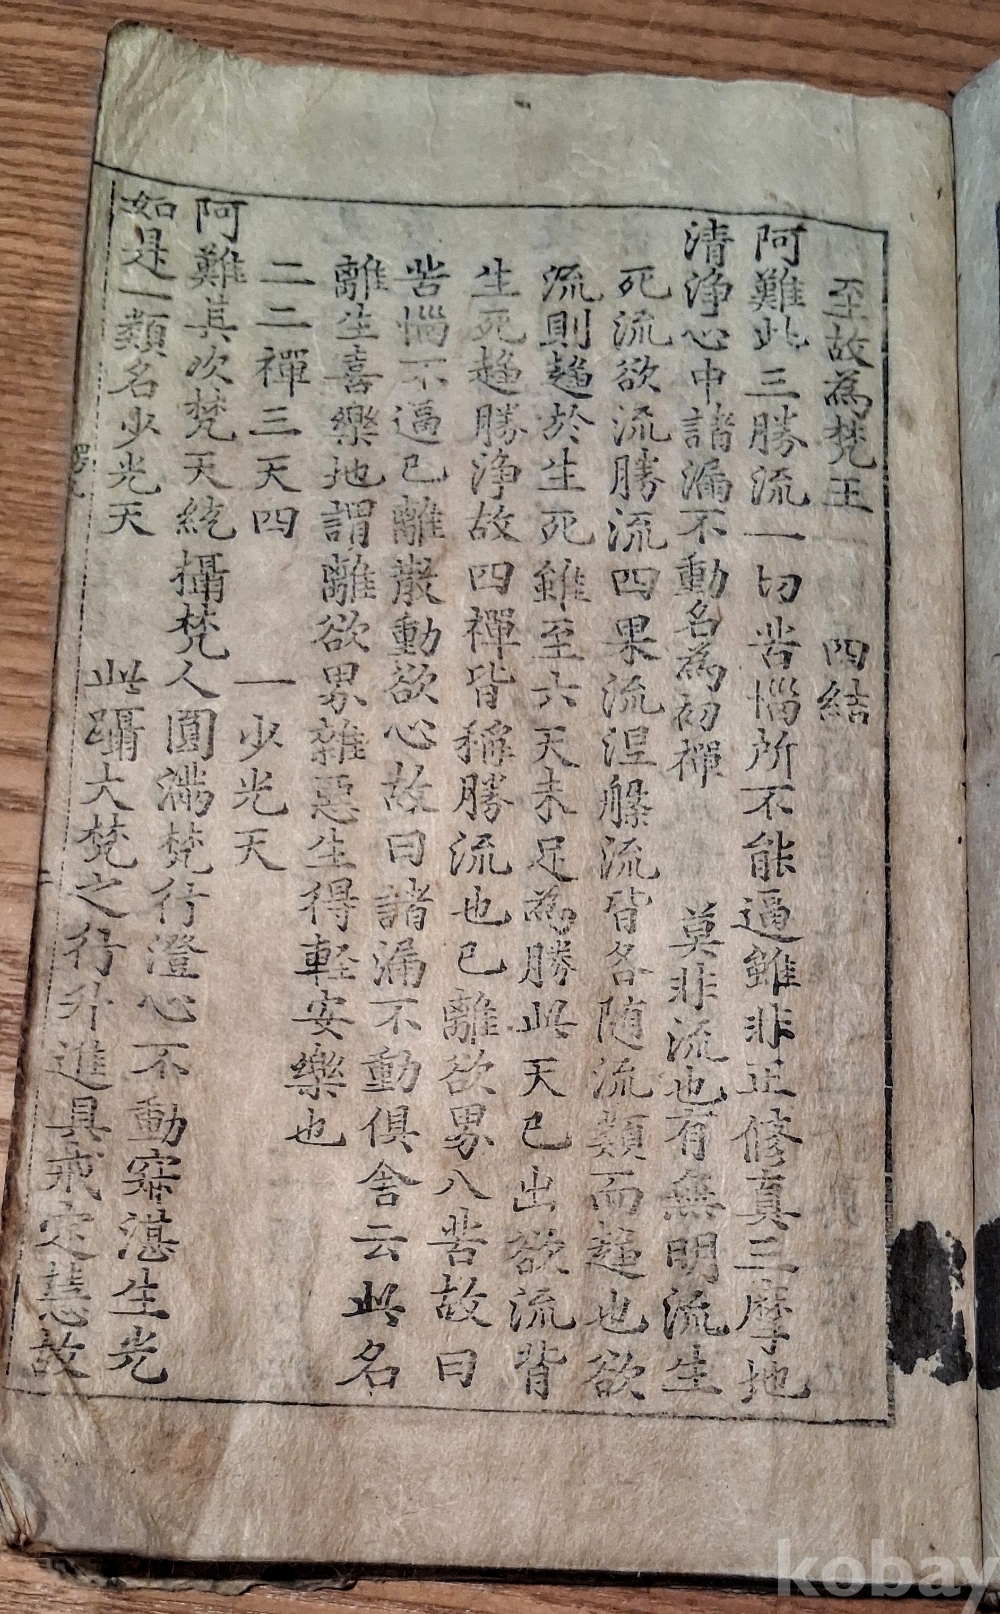 至故為梵王　四結
阿難此三勝流一切苦惱所不能逼雖非正修真三摩地
清淨心中諸漏不動名為初禪　莫非流也有無明流生
死流欲流勝流四果流涅槃流皆各随流類而趍也欲
流則趍於生死雖至六天未足為勝此天已出欲流背
生死趍勝淨故四禪皆稱勝流也已離欲界八苦故曰
苦惱不逼已離散動欲心故曰諸漏不動俱舍云此名
離生喜樂地謂離欲界雜惡生得軽安樂也
二二禪三天四　一少光天
阿難其次梵天統攝梵人圓滿梵行澄心不動寂湛生光
如是一類名少光天　此躡大梵之行升進具戒定慧故
kobay